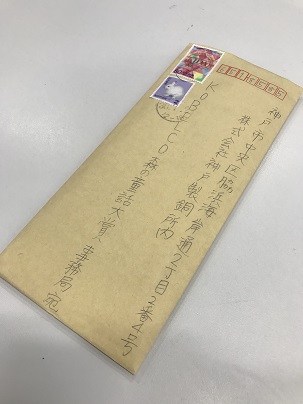 神戸市中央区脇浜海岸通2丁目2番4号
株式会社神戸製鋼所内
KOBELCO森の童話大賞事務局宛